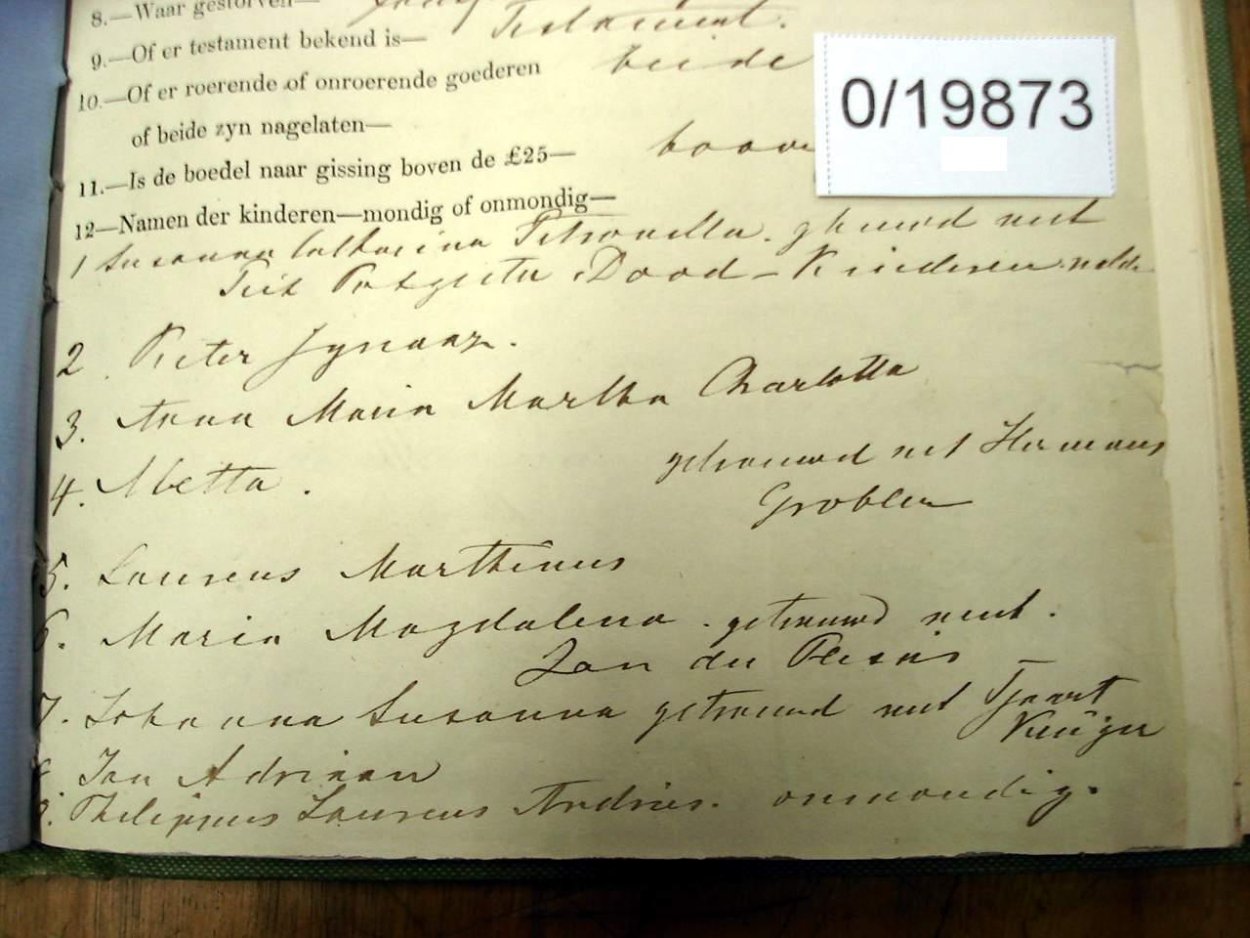 8.—Waar gestorven—
9.—Of er testament bekend is— Testament.
10.—Of er roerende of onroerende goederen beide
of beide zyn nagelaten—
0/19873
11.—Is de boedel naar gissing boven de £25— boove
12—Namen der kinderen—mondig of onmondig—
1 Susanna Catharina Petronella. getrouwd met
Piet Potgieter Dood — Kinderen
2 Pieter Ignaaz.
3. Anna Maria Martha Charlotta
4. Aletta. getrouwd met Hermanus
Grobler
5. Laurens Marthinus
6. Maria Magdalena. getrouwd met.
Jan du Plesis —
7. Johanna Susanna getrouwd met Tjaart
Krüger
8. Jan Adriaan
9. Philippus Laurens Andries. onmondig.